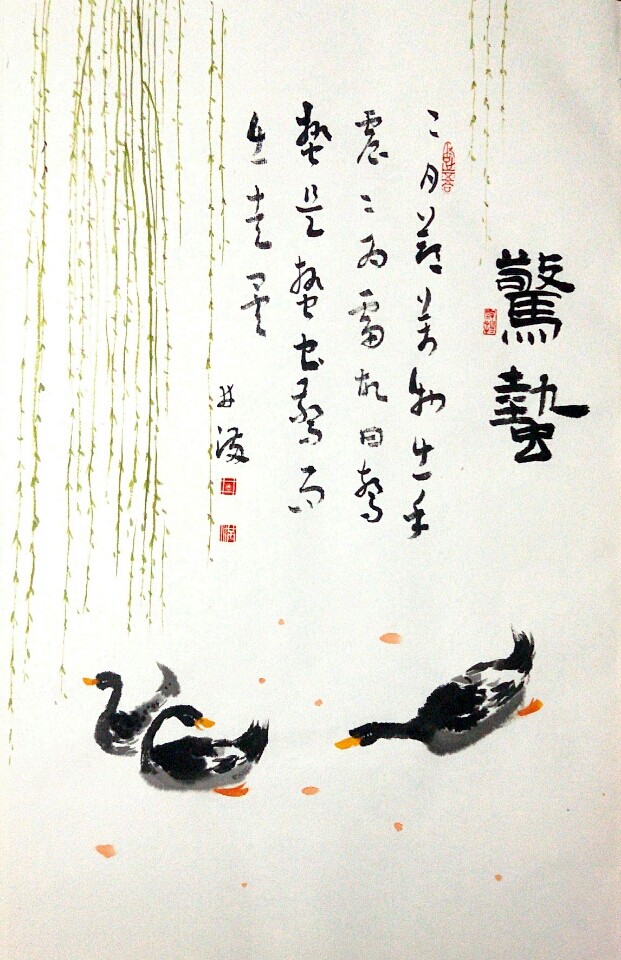 驚蟄
二月節萬物出乎
震〻为雷故曰驚
蟄是蟄虫驚而
出走矣